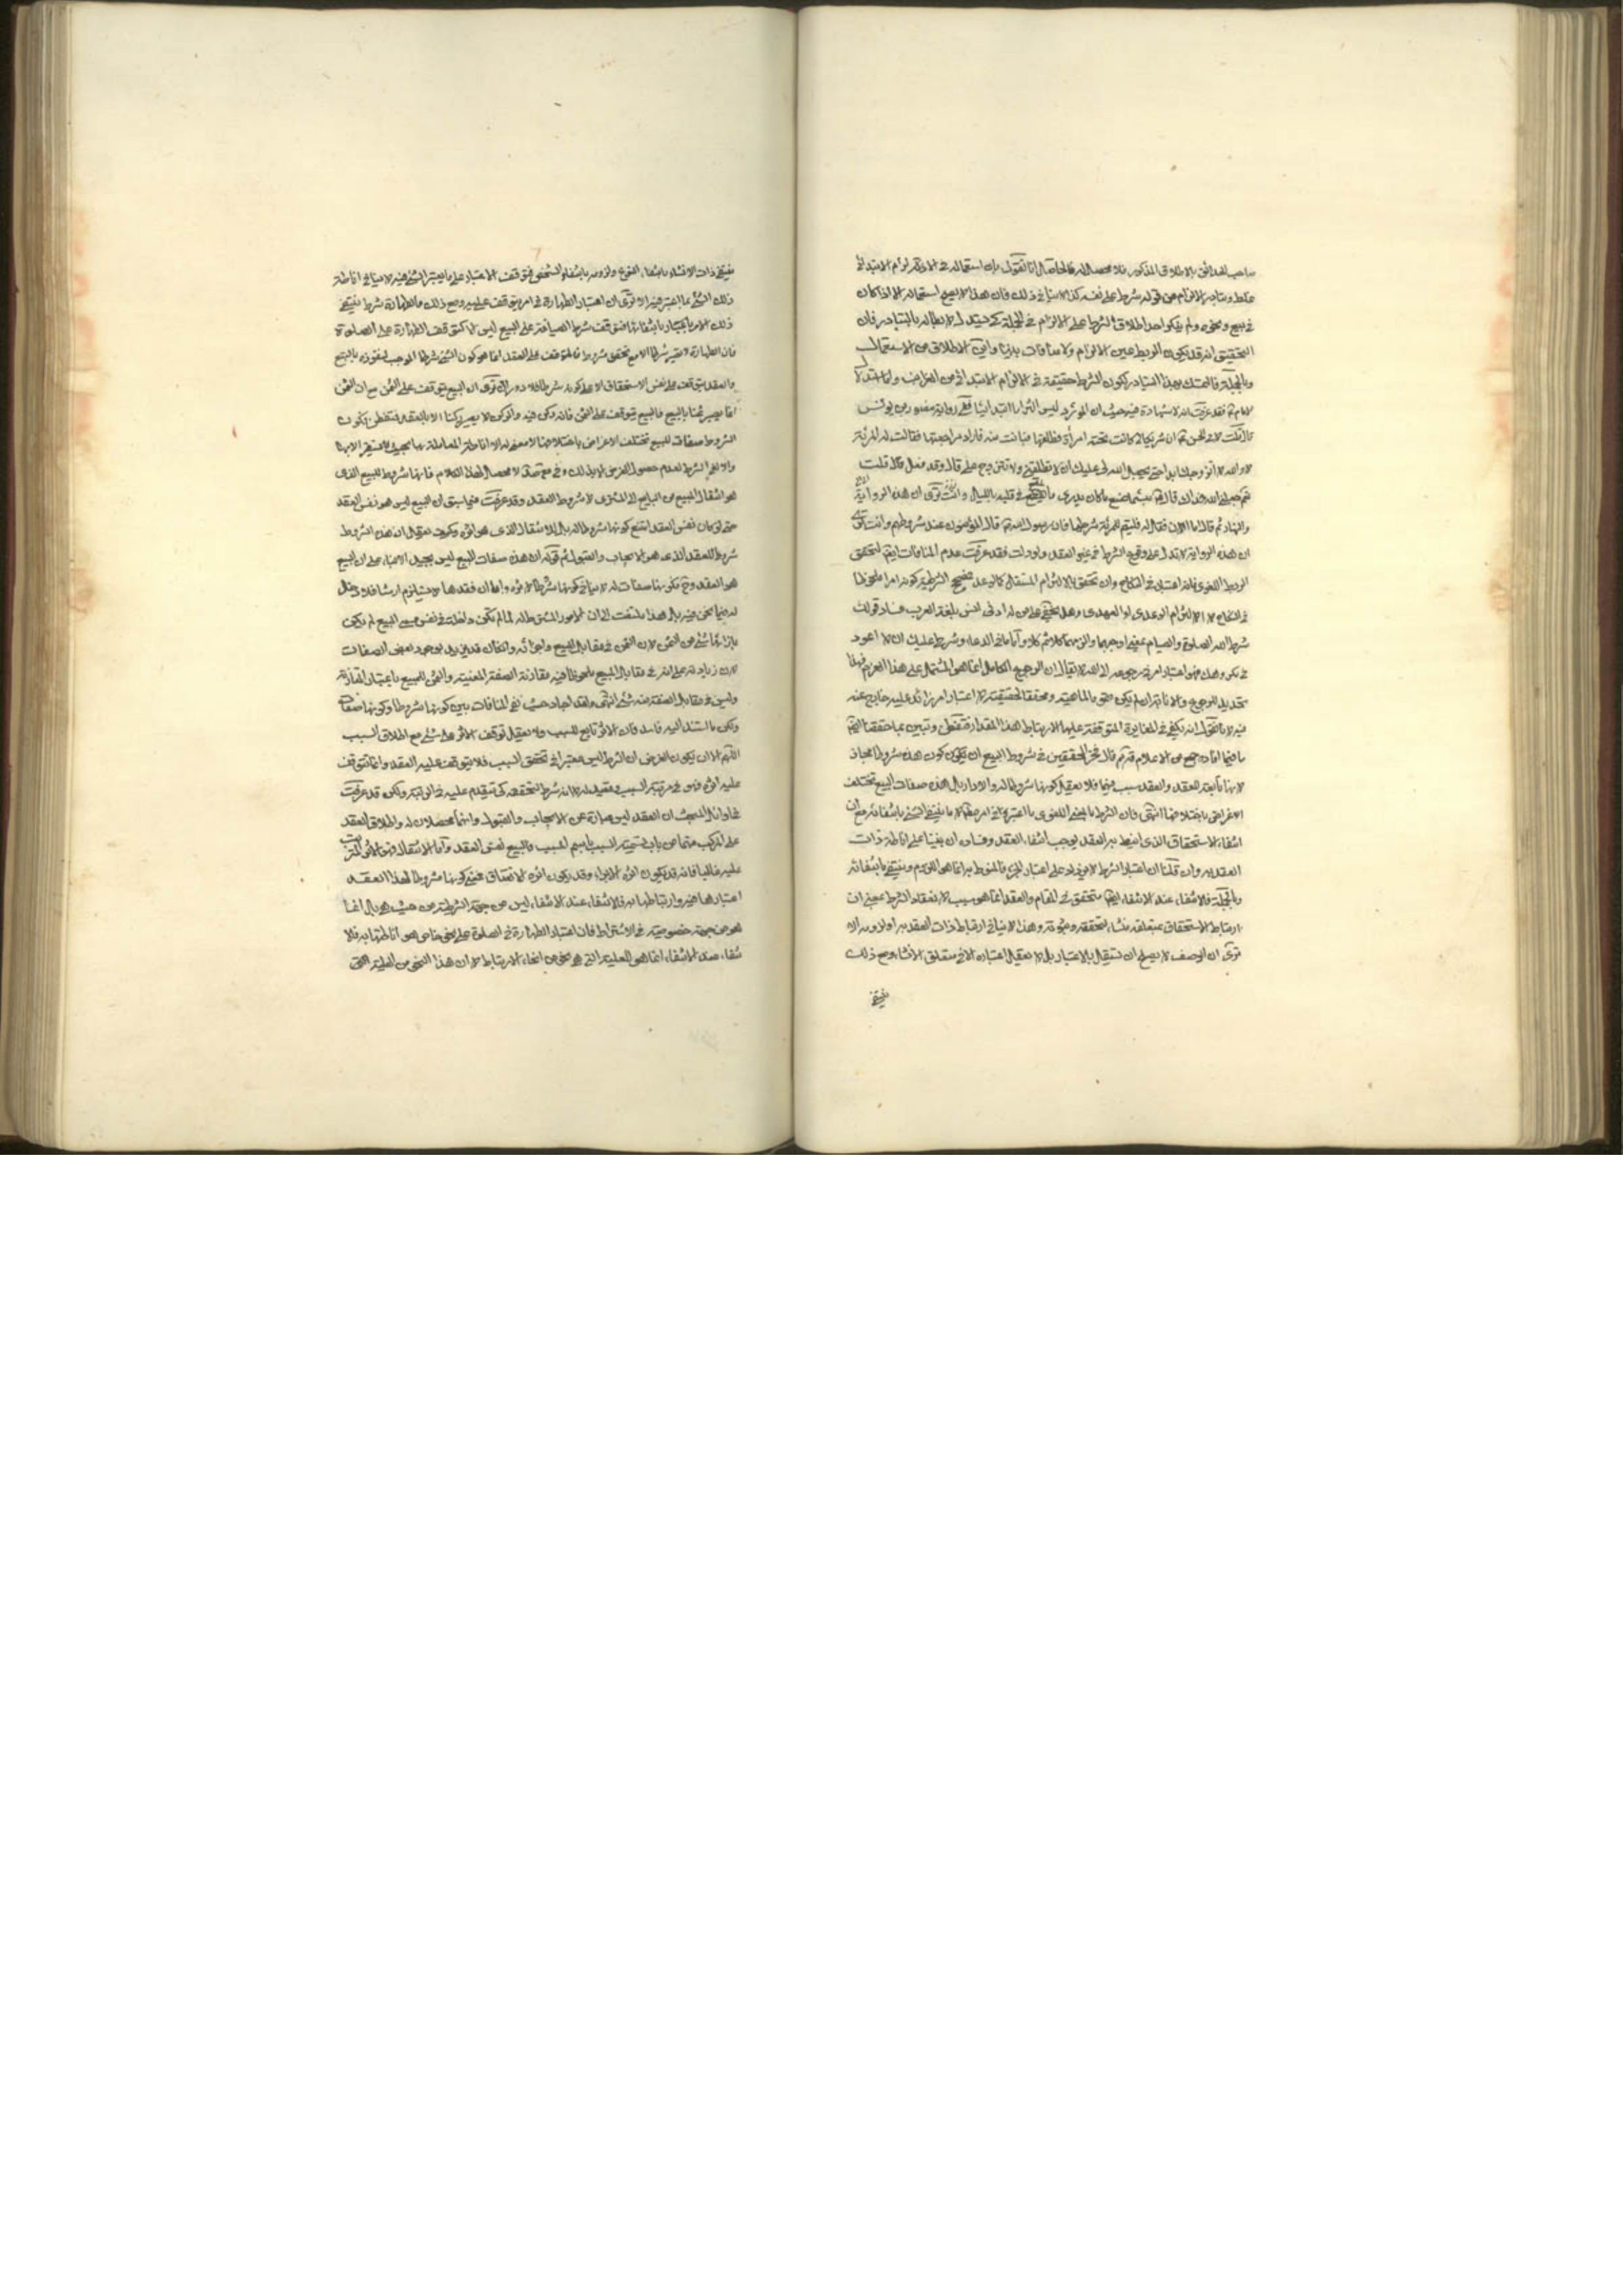 صاحب الحدائق بالاطلاق المذكور فلا محصل له فالحاصل انا نقول بان استعماله في الالتزام الابتدائي
غلط وتبادر الالتزام من قوله شرط على نفسه كذا لا ينافي ذلك فان هذا لا يصح استعماله الا اذا كان
في بيع ونحوه ولم ينكر احد اطلاق الشرط على الالزام في الجملة كي يستدل لابطاله بالتبادر فان
التحقيق انه قد يكون الربط عين الالزام ولا منافات بينها واين الاطلاق من الاستعمال
وبالجملة فالتمسك بهذا التبادر لكون الشرط حقيقة في الالزام الابتدائي من الغرائب واما استدلال
الامام فقد عرفت انه لا شهادة فيه حيث ان المورد ليس التزاما ابتدائيا ففي رواية منصور بن يونس
قال قلت لابي الحسن ان شريكا لي كانت تحته امرأة فطلقها فبانت منه فاراد مراجعتها فقالت له المرئة
لا والله لا اتزوجك ابدا حتى يجعل الله لي عليك ان لا تطلقني ولا تتزوج علي قال وقد فعل قال قلت
نعم جعلني الله فداك قال بئسما صنع ما كان يدري ما يقع في قلبه بالليل
والنهار ثم قال اما الان فقل له فليتم للمرئة شرطها فان رسول الله قال المؤمنون عند شروطهم وانت ترى
ان هذه الرواية لا تدل على وقوع الشرط في غير العقد ولو دلت فقد عرفت عدم المنافات ايضا لتحقق
الربط اللغوي فانه اعتبار في النكاح وان تحقق بالالتزام المستقل كالوعد فصحيح الشرطية كونه امرا ملحوظا
في النكاح لا الالتزام الوعدي او العهدي وهل يخفى على من له ادنى انس بلغة العرب فساد قولك
شرط الله الصلوة والصيام بمعنى اوجبهما والزمهما كلا ثم كلا واما ما في الدعاء وشرط عليك ان لا اعود
في مكروهك فهو اعتبار امر في رجوعه الى الله لا يقال ان الرجوع الكامل انما هو المشتمل على هذا العزم فهذا
تحديد للرجوع والا نابه ان لم يكن مقوما للماهية ومحققا لحقيقته لا اعتبار امر زائد عليه خارج عنه
فيه لانا نقول انه يكفي في المغايرة المتوقفة عليها الارتباط هذا المقدار فتفطن وتبين بما حققنا ايضا
ما فيما افاده جمع من الاعلام قال فخر المحققين في شروط البيع ان يكون كون هذه شروطا مجاز
لانها تابعة للعقد والعقد سبب فيها فلا يعقل كونها شروطا له والا دار بل هذه صفات البيع تختلف
الاغراض باختلافها انتهى فان الشرط بالمعنى اللغوي ما اعتبر في امر مطلقا لا ما ينتفي الشيء بانتفائه مع ان
انتفاء الاستحقاق الذي انيط به العقد يوجب انتفاء العقد وفساده ان بنينا على اناطة ذات
العقد به وان قلنا ان اعتبار الشرط لا يزيد على اعتبار الجزء فالمنوط به انما هو اللزوم وينتفي بانتفائه
وبالجملة فالانتفاء عند الانتفاء ايضا متحقق في المقام والعقد انما هو سبب لانعقاد الشرط بمعنى ان
ارتباط الاستحقاق بمتعلقه منشاء لتحققه وثبوته وهذا لا ينافي ارتباط ذات العقد به او لزومه الا
ترى ان الوصف لا يصلح ان يستقل بالاعتبار بل لا يعقل اعتباره الا في متعلق الانشاء ومع ذلك
ينتفي
ينتفي ذات الانشاء بانتفاء النوع ولزومه بانتفاء الشخص فتوقف الاعتبار على ما يعتبر الشيء فيه لا ينافي اناطة
ذلك الشيء بما اعتبر فيه الا ترى ان اعتبار الطهارة في امر يتوقف عليه ومع ذلك فالطهارة شرط ينتفي
ذلك الامر باعتبار بانتفائها فتوقف شرط الضيافة على البيع ليس الا كتوقف الطهارة على الصلوة
فان الطهارة لا تصير شرطا الا مع تحقق شروط فالمتوقف على العقد انما هو كون الشيء شرطا الموجب لنفوذه بالبيع
والعقد يتوقف على نفس الاستحقاق لا على كونه شرطا فلا دور الا ترى ان البيع يتوقف على الثمن مع ان الثمن
انما يصير ثمنا بالبيع فالبيع يتوقف على الثمن فانه ركن فيه والركن لا يصير ركنا الا بالعقد فتفطن وكون
الشروط صفات للبيع تختلف الاغراض باختلافها لا معنى له الا اناطة المعاملة بها بحيث لا تستقر الا بها
والا لغى الشرط لعدم حصول الغرض الا بذلك وفي لا محصل لهذا الكلام فانها شروط للبيع الذي
هو انتقال المبيع من البايع الى المشتري لا شروط العقد وقد عرفت فيما سبق ان البيع ليس هو نفس العقد
حتى لو كان نفس العقد امتنع كونها شروطا له بل الانتقال الذي هو اثره وكيف يعقل ان هذه الشروط
شروط للعقد الذي هو الايجاب والقبول ثم قوله ان هذه صفات للبيع ليس بجيد الا بناء على ان البيع
هو العقد وح نكونها صفات له لا ينافي كونها شروطا لاثره واما ان فقدها لا يستلزم ارشا فلا دخل
له فيما نحن فيه بل هذا يلتفت الى ان الامور المشروطة لما لم تكن داخلة في نفس مسمى البيع لم يكن
بازائها شيء من الثمن لان الثمن في مقابل المبيع واجزائه وان كان قد يزيد بوجود بعض الصفات
لان زيادته على الثمن في مقابل المبيع ملحوظا فيه مقارنة الصفة المعنية والثمن للمبيع باعتبار المقارنة
وليس في مقابل الصفة منه شيء انتهى ولقد اجاد حيث نفى المنافات بين كونها شروطا وكونها صفات
ولكن ما استند اليه فاسد فان الاثر تابع للسبب ولا يعقل توقف الاثر على شيء مع اطلاق السبب
اللهم الا ان يكون الغرض ان الشرط ليس معتبرا في تحقق السبب فلا يتوقف عليه العقد وانما تتوقف
عليه اثره فهو في مرتبة السبب مقيد له لا انه شرط لتحققه كي يتقدم عليه في الرتبة ولكن قد عرفت
في اوائل المبحث ان العقد ليس عبارة عن الايجاب والقبول وانهما محصلان له واطلاق العقد
على المركب منهما من باب تسمية السبب باسم المسبب فالبيع نفس العقد واما الانتقال فهو الاثر المترتب
عليه غالبا فانه قد يكون اثره الابراء وقد يكون اثره الانعتاق فمعنى كونها شروطا لهذا العقد
اعتبارها فيه وارتباطها به فالانتفاء عند الانتفاء ليس من جهة الشرطية من حيث هي بل انما
هو من جهة خصوصية في الاشتراط فان اعتبار الطهارة في الصلوة على نحو خاص هو اناطتها به فلا
انتفاء عند الانتفاء انما هو للعلية التي هي نحو من انحاء الارتباط لا ان هذا النحو من العلية التي